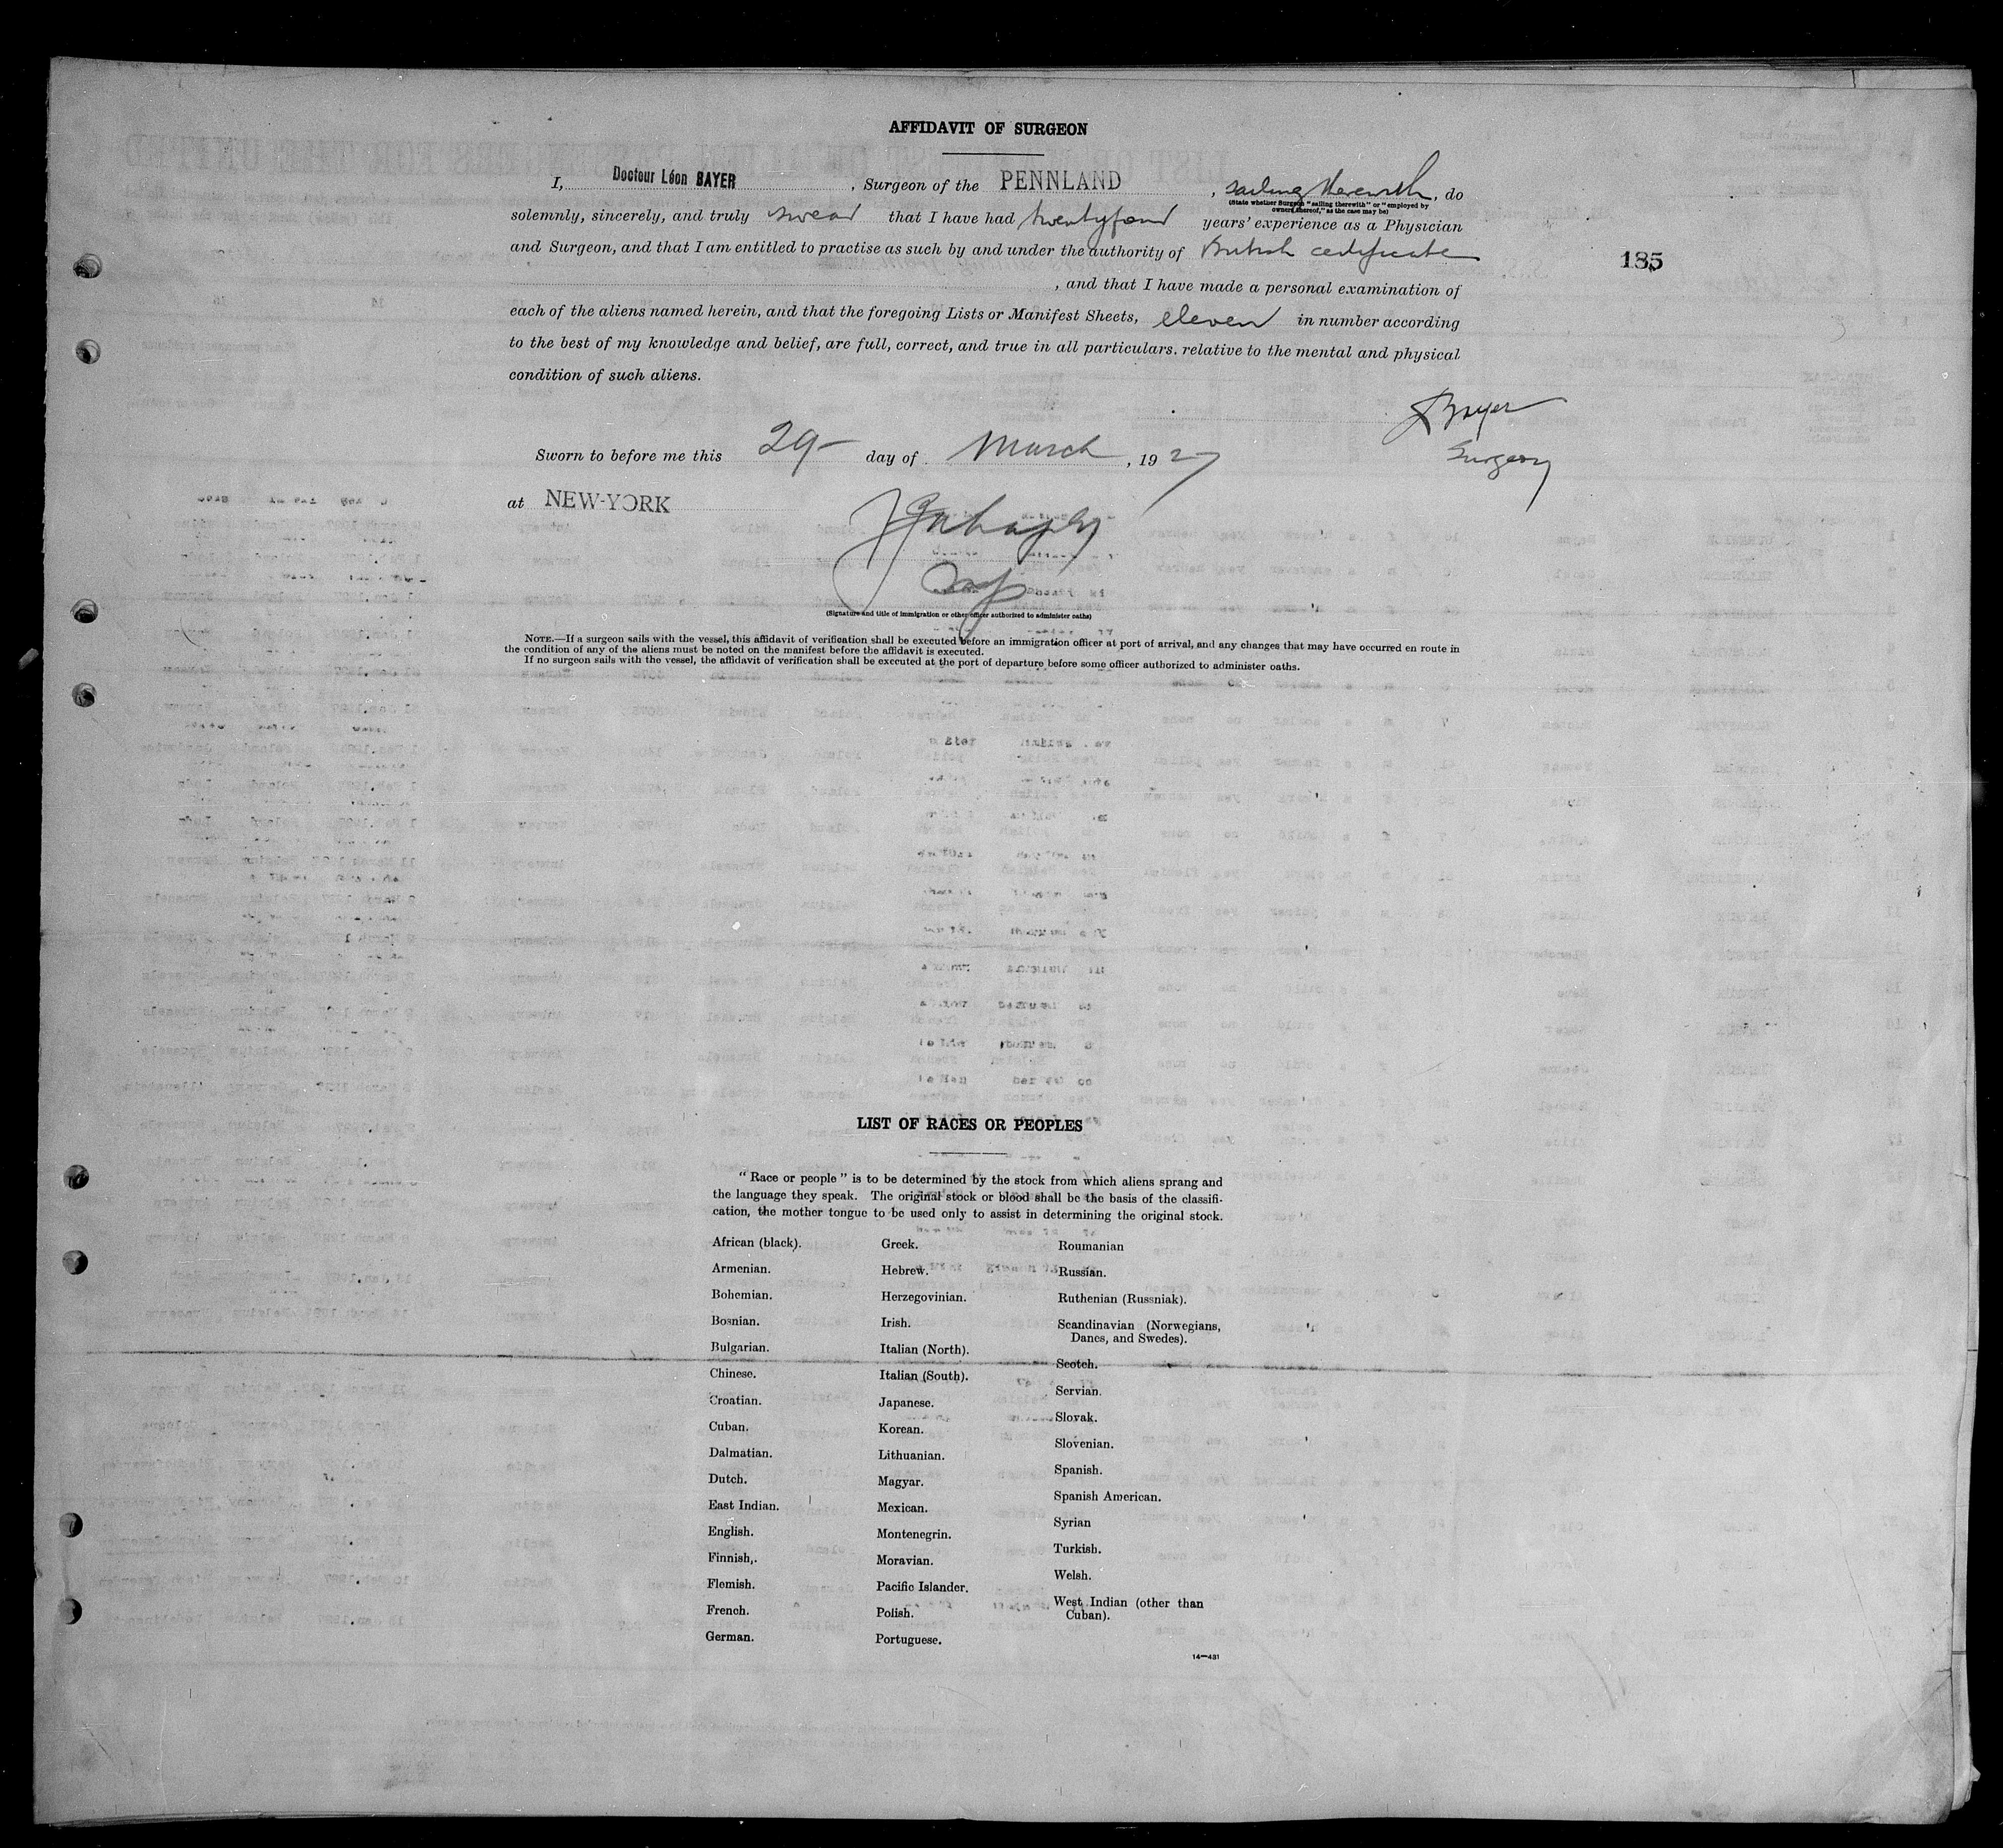 AFFIDAVIT OF SURGEON
I, Docteur Léon BAYER, Surgeon of the PENNLAND, sailing therewith, do
(State whether Surgeon "sailing therewith" or "employed by
owners thereof," as the case may be)
solemnly, sincerely, and truly swear that I have had twentyfour years' experience as a Physician
and Surgeon, and that I am entitled to practise as such by and under the authority of British certificate
185
, and that I have made a personal examination of
each of the aliens named herein, and that the foregoing Lists or Manifest Sheets, eleven in number according
to the best of my knowledge and belief, are full, correct, and true in all particulars. relative to the mental and physical
condition of such aliens.
LBayer
Surgeon
Sworn to before me this 29 day of March, 1927
at NEW-YORK
(Signature and title of immigration or other officer authorized to administer oaths)
NOTE.—If a surgeon sails with the vessel, this affidavit of verification shall be executed before an immigration officer at port of arrival, and any changes that may have occurred en route in
the condition of any of the aliens must be noted on the manifest before the affidavit is executed.
If no surgeon sails with the vessel, the affidavit of verification shall be executed at the port of departure before some officer authorized to administer oaths.
LIST OF RACES OR PEOPLES
"Race or people" is to be determined by the stock from which aliens sprang and
the language they speak. The original stock or blood shall be the basis of the classifi-
cation, the mother tongue to be used only to assist in determining the original stock.
African (black).
Armenian.
Bohemian.
Bosnian.
Bulgarian.
Chinese.
Croatian.
Cuban.
Dalmatian.
Dutch.
East Indian.
English.
Finnish,.
Flemish.
French.
German.
Greek.
Hebrew.
Herzegovinian.
Irish.
Italian (North).
Italian (South).
Japanese.
Korean.
Lithuanian.
Magyar.
Mexican.
Montenegrin.
Moravian.
Pacific Islander.
Polish.
Portuguese.
Roumanian
Russian.
Ruthenian (Russniak).
Scandinavian (Norwegians,
Danes, and Swedes).
Scotch.
Servian.
Slovak.
Slovenian.
Spanish.
Spanish American.
Syrian
Turkish.
Welsh.
West Indian (other than
Cuban).
14—431